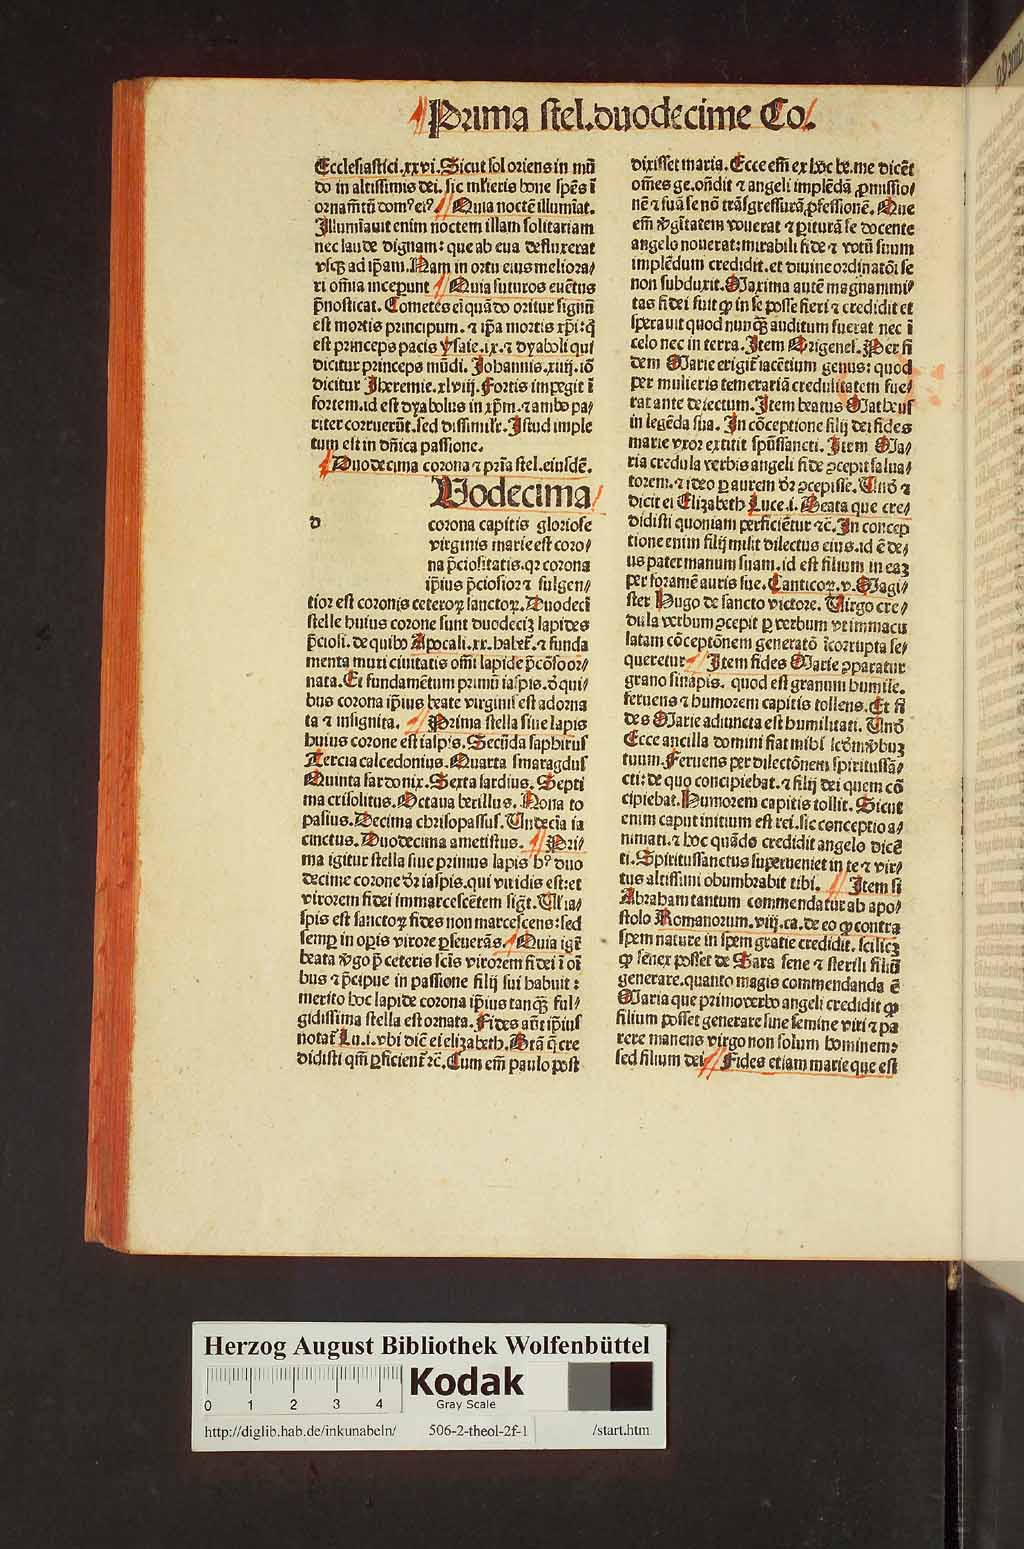 Prima stel.duodecime Co.
Ecclesiastici.xxvi.Sicut sol oriens in mū
do in altissimis dei.sic mlieris bone spēs ī
ornamtū domꝰ eiꝰ. Quia noctē illumīat.
Illumīauit enim noctem illam solitariam
nec laude dignam: que ab eua defluxerat
vsqꝫ ad ip̄am.Nam in ortu eius meliora/
ri om̄ia inceperunt Quia futuros euētus
p̄nosticat. Cometes ei quādo oritur signū
est mortis principum. ⁊ ip̄a mortis xp̄i:q̄
est princeps pacis ysaie.ix.⁊ dyaboli qui
dicitur princeps mūdi. Iohannis.xiiij.iō
dicitur Iheremie.xlviij.Fortis impegit ī
fortem.id est dyabolus in xp̄m.⁊ ambo pa/
riter corruerūt.sed dissimilr̄.Istud imple
tum est in dn̄ica passione.
Duodecima corona ⁊ pria stel.eiusdē.
Vodecima
d corona capitis gloriose
virginis marie est coro/
na p̄ciositatis.qꝛ corona
ip̄ius p̄ciosior ⁊ fulgen/
tior est coronis ceteroꝝ sanctoꝝ.Duodecī
stelle huius corone sunt duodeciꝫ lapides
p̄cioli.de quibꝰ Apocali.xx.habet̄.⁊ funda
menta muri ciuitatis om̄i lapide p̄cōso or/
nata.Et fundamētum primū iaspis.ō qui/
bus corona ip̄ius beate virginis est adorna
ta ⁊ insignita. Prima stella siue lapis
huius corone est iaspis.Secūda saphirus
Tercia calcedonius.Quarta smaragdus
Quinta sardonix.Sexta sardius.Septi
ma crisolitus.Octaua berillus.Nona to
pasius.Decima chrisopassus.Undecīa ia
cinctus.Duodecima ametistus. Pri/
ma igitur stella siue primus lapis hꝰ duo
decime corone dr̄ iaspis.qui viridis est:et
virorem fidei immarcescētem sigt̄.
spis est sanctoꝝ fides non marcescens:sed
semꝑ in oꝑis virore ꝑseuerās. Quia igr̄
beata v̄go p̄ ceteris scīs virorem fidei ī oī
bus ⁊ p̄cipue in passione filij sui habuit:
merito hoc lapide corona ip̄ius tanqꝫ ful/
gidissima stella est ornata. Fides aūt ip̄ius
notat̄ Lu.i.vbi dic̄ ei elizabeth.Btā q̄ cre
didisti qm̄ ꝑficient̄ ⁊c̄.Cum em̄ paulo post
dixisset maria.Ecce em̄ ex hoc be.me dicēt
om̄es ge.on̄dit ⁊ angeli implēdā ꝓmissio/
nē ⁊ suā se nō trāsgressurā ꝓfessionē.Que
em̄ v̄gītatem vouerat ⁊ ꝑiturā se docente
angelo nouerat:mirabili fide ⁊ votū suum
implēdum credidit.et diuine ordinatōi se
non subduxit.Maxima autē magnanimi/
tas fidei fuit ꝙ in se posse fieri ⁊ credidit et
sperauit quod nunqꝫ auditum fuerat nec ī
celo nec in terra.Item Origenes.Per fi
dem Marie erigit̄ iacētium genus: quod
per mulieris temerariā credulitatem fue/
rat ante deiectum.Item beatus Matheus
in legēda sua. In cōceptione filij dei fides
marie vxor extitit spūssancti. Item Ma/
ria credula verbis angeli fide ꝯcepit salua/
torem.⁊ ideo ꝑ aurem dr̄ ꝯcepisse. Un̄ ⁊
dicit ei Elizabeth Luce.i.Beata que cre/
didisti quoniam perficiētur ⁊c̄.In concep
tione enim filij misit dilectus eius.id ē de/
us pater manum suam.id est filium in eaꝫ
per foramē auris sue.Canticoꝝ.v.Magi/
ster Hugo de sancto victore. Virgo cre/
dula verbum ꝯcepit ꝑ verbum vt immacu
latam cōceptōnem generatō īcorrupta se/
queretur Item fides Marie ꝯparatur
grano sinapis. quod est granum humile.
feruens ⁊ humorem capitis tollens.Et fi
des Marie adiuncta est humilitati. Un̄
Ecce ancilla domini fiat mihi scd̄m v̄buꝫ
tuum.Feruens per dilectōnem spiritussā/
cti:de quo concipiebat.⁊ filij dei quem cō
cipiebat.Humorem capitis tollit.Sicut
enim caput initium est rei.sic conceptio a/
nimati.⁊ hoc quādo credidit angelo dicē
ti.Spiritussanctus superueniet in te ⁊ vir/
tus altissimi obumbrabit tibi. Item si
Abraham tantum commendatur ab apo/
stolo Romanorum.viij.ca.de eo ꝙ contra
spem nature in spem gratie credidit. scilicꝫ
ꝙ senex posset de Sara sene ⁊ sterili filiū
generare.quanto magis commendanda ē
Maria que primo verbo angeli credidit ꝙ
filium posset generare sine semine viri ⁊ pa
rere manens virgo non solum hominem:
sed filium dei Fides etiam marie que est
Herzog August Bibliothek Wolfenbüttel
0 1 2 3 4
Kodak
Gray Scale
http://diglib.hab.de/inkunabeln/ 506-2-theol-2f-1 /start.htm